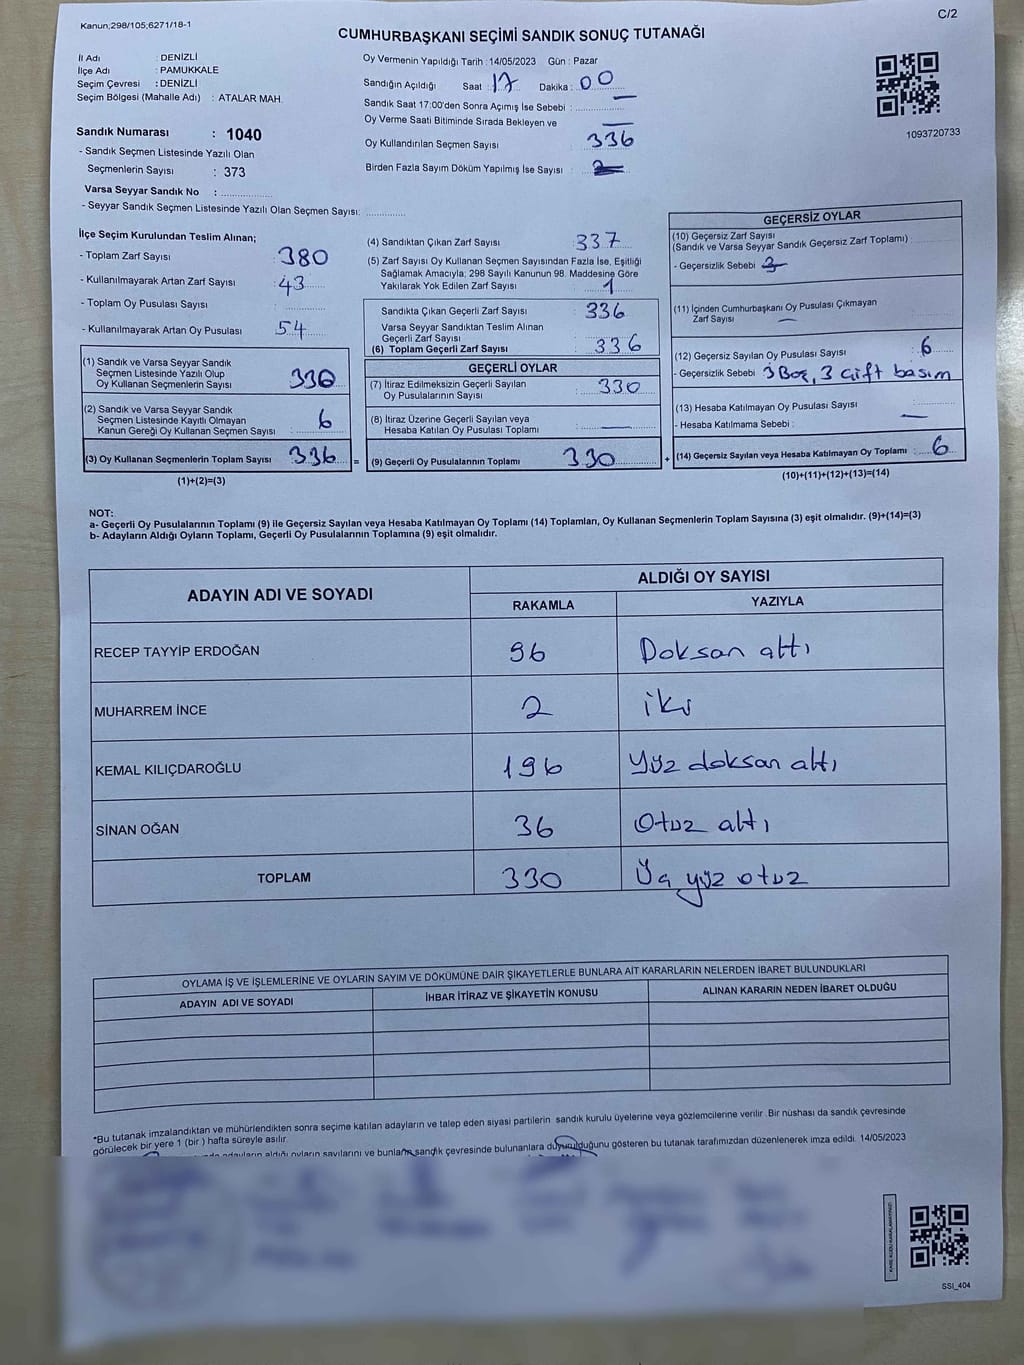 Kanun;298/105;6271/18-1
C/2
CUMHURBAŞKANI SEÇİMİ SANDIK SONUÇ TUTANAĞI
İl Adı : DENİZLİ
İlçe Adı : PAMUKKALE
Seçim Çevresi : DENİZLİ
Seçim Bölgesi (Mahalle Adı) : ATALAR MAH.
Oy Vermenin Yapıldığı Tarih : 14/05/2023 Gün : Pazar
Sandığın Açıldığı Saat : 17 Dakika : 00
Sandık Saat 17:00'den Sonra Açımış İse Sebebi : —
Oy Verme Saati Bitiminde Sırada Bekleyen ve —
Oy Kullandırılan Seçmen Sayısı : 336
Birden Fazla Sayım Döküm Yapılmış İse Sayısı :
1093720733
Sandık Numarası : 1040
- Sandık Seçmen Listesinde Yazılı Olan
Seçmenlerin Sayısı : 373
Varsa Seyyar Sandık No :
- Seyyar Sandık Seçmen Listesinde Yazılı Olan Seçmen Sayısı:
İlçe Seçim Kurulundan Teslim Alınan;
- Toplam Zarf Sayısı : 380
- Kullanılmayarak Artan Zarf Sayısı : 43
- Toplam Oy Pusulası Sayısı :
- Kullanılmayarak Artan Oy Pusulası : 54
(1) Sandık ve Varsa Seyyar Sandık
Seçmen Listesinde Yazılı Olup
Oy Kullanan Seçmenlerin Sayısı : 330
(2) Sandık ve Varsa Seyyar Sandık
Seçmen Listesinde Kayıtlı Olmayan
Kanun Gereği Oy Kullanan Seçmen Sayısı : 6
(3) Oy Kullanan Seçmenlerin Toplam Sayısı : 336
(1)+(2)=(3)
(4) Sandıktan Çıkan Zarf Sayısı : 337
(5) Zarf Sayısı Oy Kullanan Seçmen Sayısından Fazla İse, Eşitliği
Sağlamak Amacıyla; 298 Sayılı Kanunun 98. Maddesine Göre
Yakılarak Yok Edilen Zarf Sayısı : 1
Sandıkta Çıkan Geçerli Zarf Sayısı : 336
Varsa Seyyar Sandıktan Teslim Alınan
Geçerli Zarf Sayısı :
(6) Toplam Geçerli Zarf Sayısı : 336
=
GEÇERLİ OYLAR
(7) İtiraz Edilmeksizin Geçerli Sayılan
Oy Pusulalarının Sayısı : 330
(8) İtiraz Üzerine Geçerli Sayılan veya
Hesaba Katılan Oy Pusulası Toplamı : —
(9) Geçerli Oy Pusulalarının Toplamı : 330
+
GEÇERSİZ OYLAR
(10) Geçersiz Zarf Sayısı
(Sandık ve Varsa Seyyar Sandık Geçersiz Zarf Toplamı) :
- Geçersizlik Sebebi :
(11) İçinden Cumhurbaşkanı Oy Pusulası Çıkmayan
Zarf Sayısı : —
(12) Geçersiz Sayılan Oy Pusulası Sayısı : 6
- Geçersizlik Sebebi : 3 Boş, 3 çift basım
(13) Hesaba Katılmayan Oy Pusulası Sayısı :
- Hesaba Katılmama Sebebi : —
(14) Geçersiz Sayılan veya Hesaba Katılmayan Oy Toplamı : 6
(10)+(11)+(12)+(13)=(14)
NOT:
a- Geçerli Oy Pusulalarının Toplamı (9) ile Geçersiz Sayılan veya Hesaba Katılmayan Oy Toplamı (14) Toplamları, Oy Kullanan Seçmenlerin Toplam Sayısına (3) eşit olmalıdır. (9)+(14)=(3)
b- Adayların Aldığı Oyların Toplamı, Geçerli Oy Pusulalarının Toplamına (9) eşit olmalıdır.
ADAYIN ADI VE SOYADI
ALDIĞI OY SAYISI
RAKAMLA YAZIYLA
RECEP TAYYİP ERDOĞAN 96 Doksan altı
MUHARREM İNCE 2 iki
KEMAL KILIÇDAROĞLU 196 Yüz doksan altı
SİNAN OĞAN 36 Otuz altı
TOPLAM 330 Üç yüz otuz
OYLAMA İŞ VE İŞLEMLERİNE VE OYLARIN SAYIM VE DÖKÜMÜNE DAİR ŞİKAYETLERLE BUNLARA AİT KARARLARIN NELERDEN İBARET BULUNDUKLARI
ADAYIN ADI VE SOYADI İHBAR İTİRAZ VE ŞİKAYETİN KONUSU ALINAN KARARIN NEDEN İBARET OLDUĞU
*Bu tutanak imzalandıktan ve mühürlendikten sonra seçime katılan adayların ve talep eden siyasi partilerin sandık kurulu üyelerine veya gözlemcilerine verilir. Bir nüshası da sandık çevresinde
görülecek bir yere 1 (bir ) hafta süreyle asılır.
adayların aldığı oyların sayılarını ve bunların sandık çevresinde bulunanlara duyurulduğunu gösteren bu tutanak tarafımızdan düzenlenerek imza edildi. 14/05/2023
KARE KODU KARALAMAYINIZ!
SSI_404